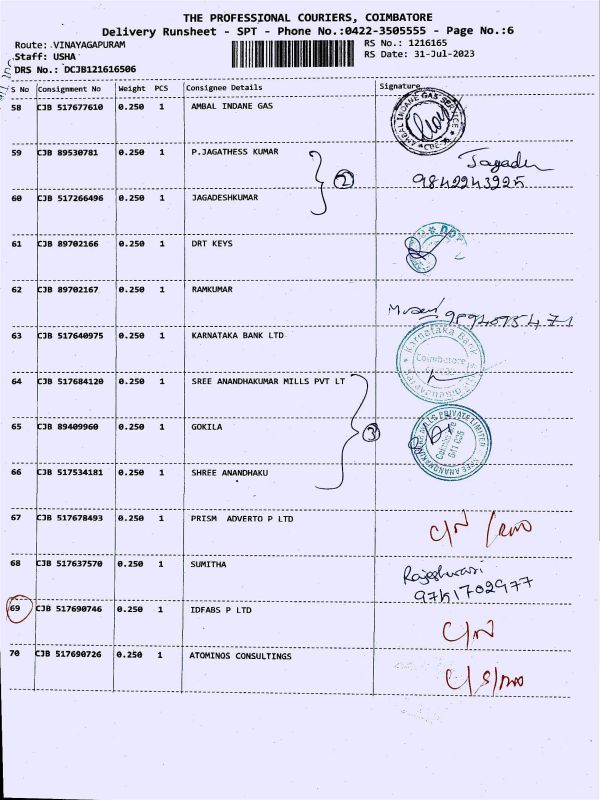 THE PROFESSIONAL COURIERS, COIMBATORE
Delivery Runsheet - SPT - Phone No.:0422-3505555 - Page No.:6
Route: VINAYAGAPURAM RS No.: 1216165
Staff: USHA RS Date: 31-Jul-2023
DRS No.: DCJB121616506
S No Consignment No Weight PCS Consignee Details Signature
58 CJB 517677610 0.250 1 AMBAL INDANE GAS
AMBAL INDANE GAS SERVICE
59 CJB 89530781 0.250 1 P.JAGATHESS KUMAR
2
9842243225
60 CJB 517266496 0.250 1 JAGADESHKUMAR
61 CJB 89702166 0.250 1 DRT KEYS
62 CJB 89702167 0.250 1 RAMKUMAR
63 CJB 517640975 0.250 1 KARNATAKA BANK LTD
Karnataka Bank
Coimbatore
64 CJB 517684120 0.250 1 SREE ANANDHAKUMAR MILLS PVT LT
65 CJB 89409960 0.250 1 GOKILA
3
MILLS PRIVATE LIMITED
Coimbatore
641 035
66 CJB 517534181 0.250 1 SHREE ANANDHAKU
67 CJB 517678493 0.250 1 PRISM ADVERTO P LTD
C/N
68 CJB 517637570 0.250 1 SUMITHA
Rajeshwari
9751702977
69 CJB 517690746 0.250 1 IDFABS P LTD
C/N
70 CJB 517690726 0.250 1 ATOMINOS CONSULTINGS